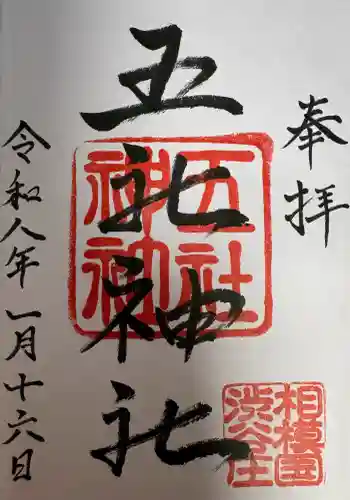 奉拝
五社神社
五社
神社
相模国
渋谷庄
令和八年一月十六日